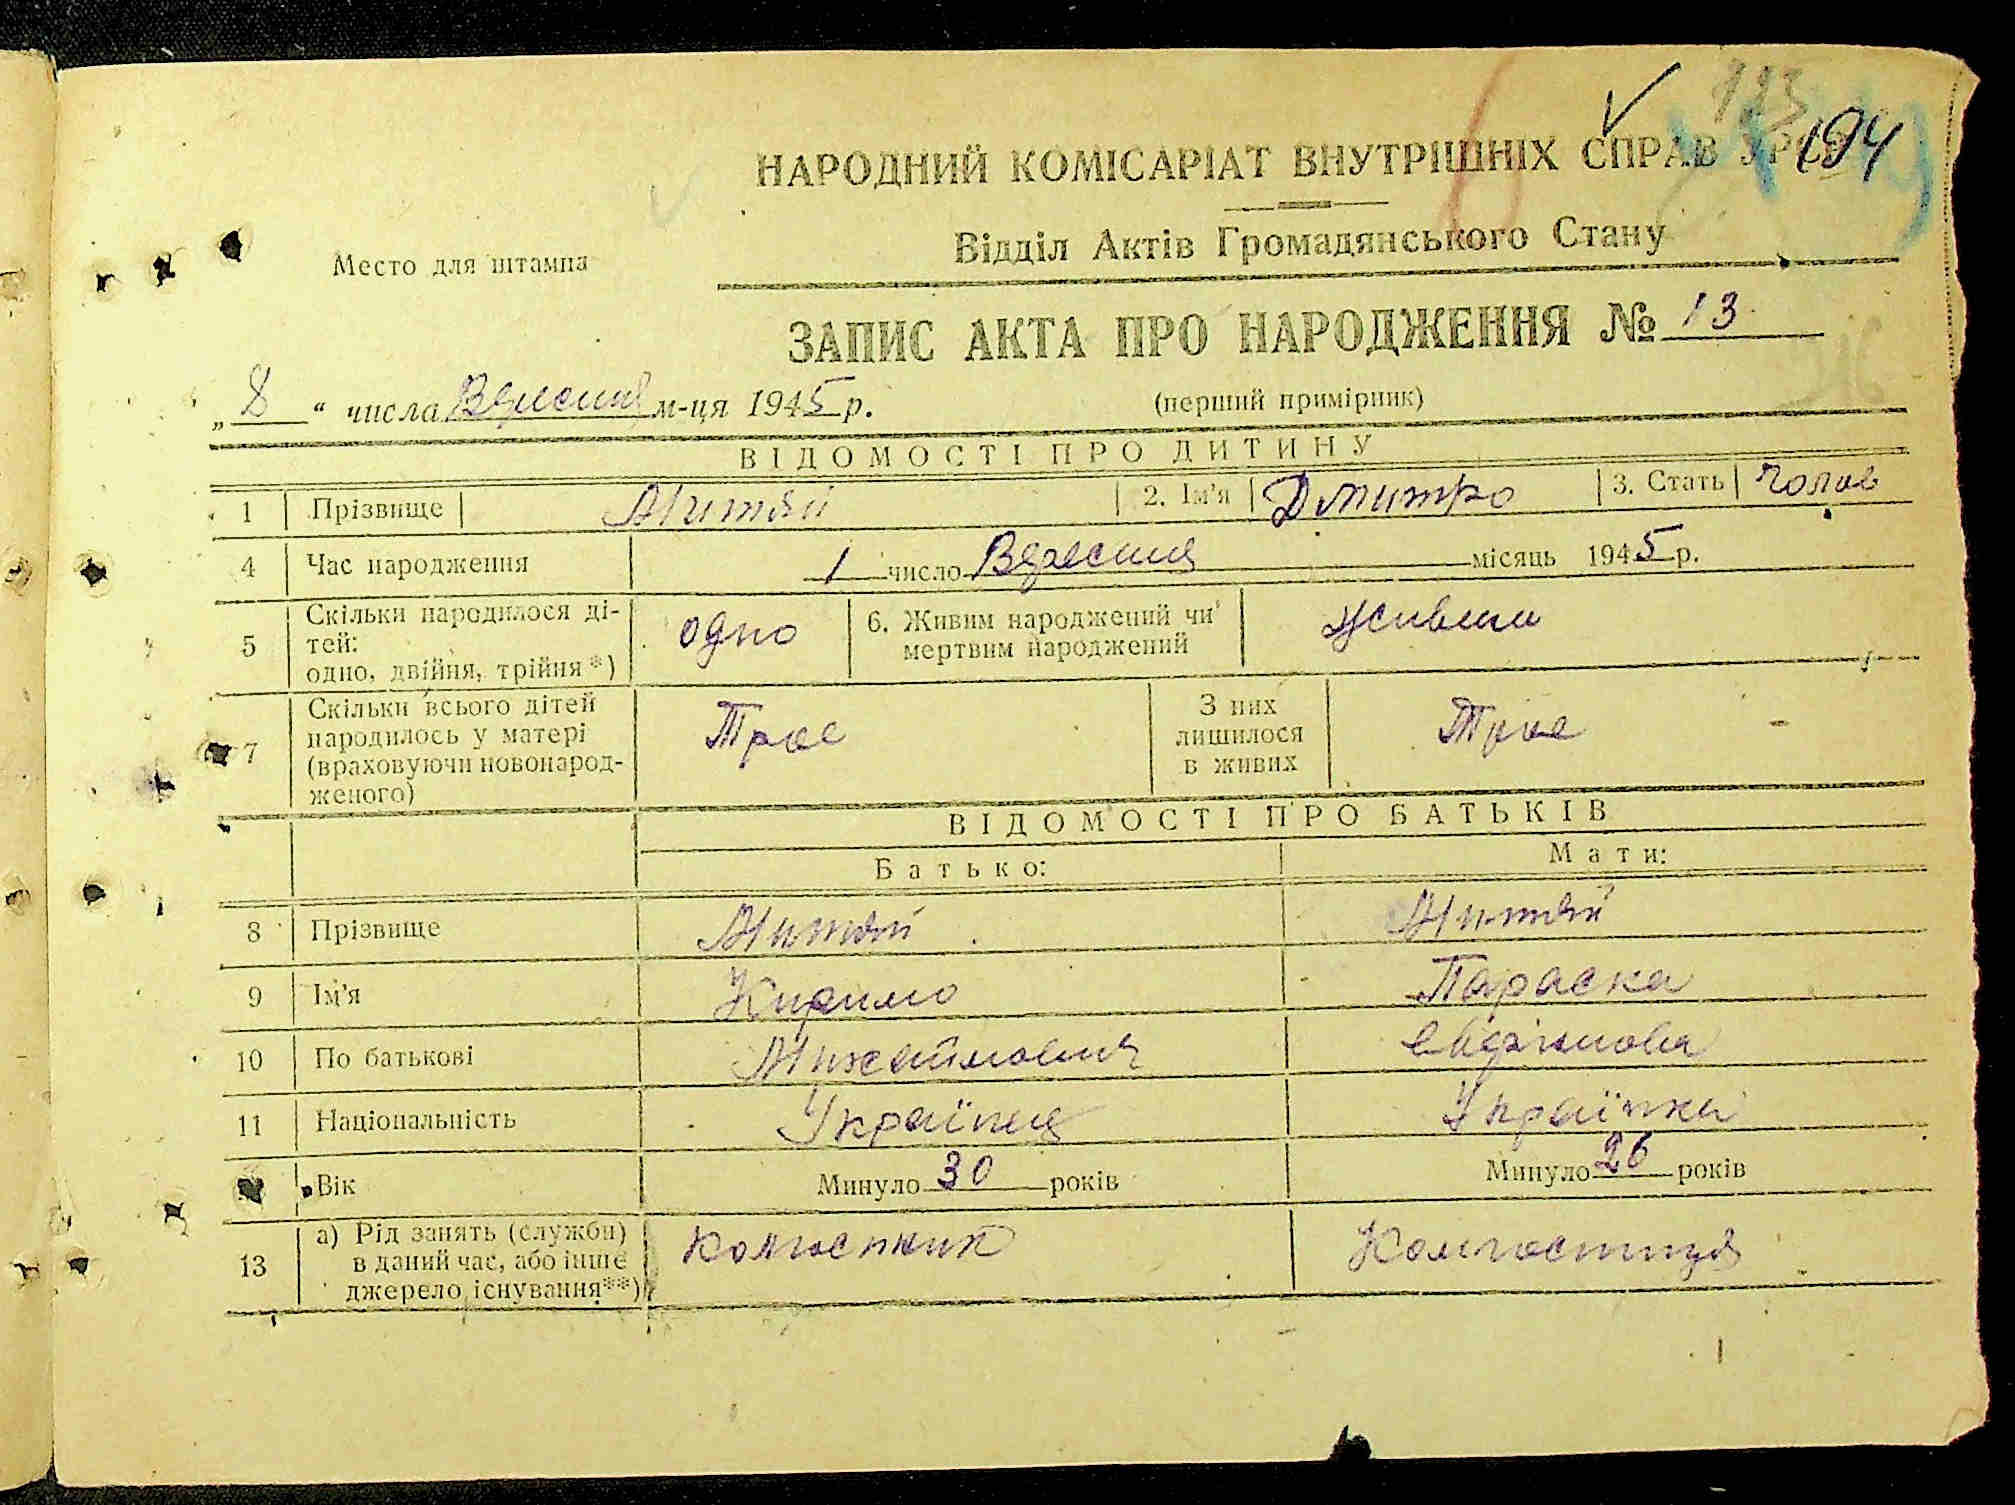 194
НАРОДНИЙ КОМІСАРІАТ ВНУТРІШНІХ СПРАВ УРСР
Відділ Актів Громадянського Стану
Место для штампа
ЗАПИС АКТА ПРО НАРОДЖЕННЯ № 13
„ 8 “ числа Вересня м-ця 1945 р. (перший примірник)
ВІДОМОСТІ ПРО ДИТИНУ
1 Прізвище Митяй 2. Ім'я Дмитро 3. Стать Чолов
4 Час народження 1 число Вересня місяць 1945 р.
5 Скільки народилося ді-
тей:
одно, двійня, трійня *) одно 6. Живим народжений чи
мертвим народжений живим
7 Скільки всього дітей
народилось у матері
(враховуючи новонарод-
женого) Троє З них
лишилося
в живих Троє
ВІДОМОСТІ ПРО БАТЬКІВ
Батько: Мати:
8 Прізвище Митяй Митяй
9 Ім'я Кирило Параска
10 По батькові Михайлович
11 Національність Українец Українка
Вік Минуло 30 років Минуло 26 років
13 а) Рід занять (служби)
в даний час, або інше
джерело існування**) Колгоспник Колгоспниця